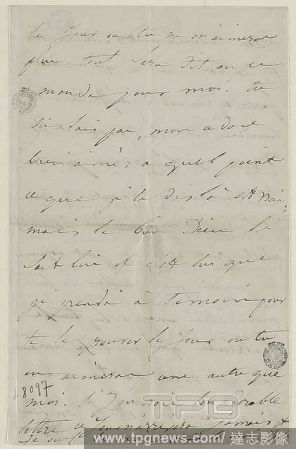 le jour où tu ne m'aimeras
plus tout sera dit en ce
monde pour moi. tu
ne sais pas, mon adoré
bien aimé, à quel point
ce que je te dis là est vrai,
mais le bon Dieu le
sait lui et c'est lui que
je prends à témoin pour
te le prouver le jour où tu
en aimeras une autre que
moi.
8097
TPG
www.tpgnews.com / 達志影像